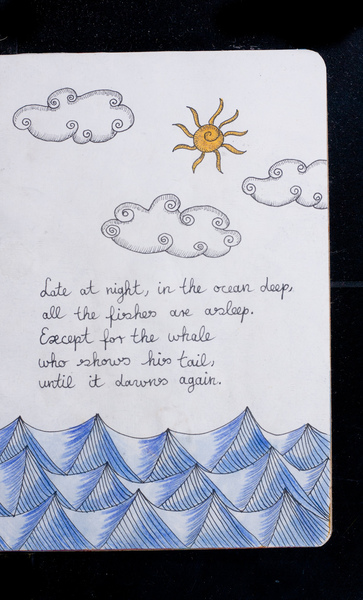 Late at night, in the ocean deep,
all the fishes are asleep.
Except for the whale
who shows his tail,
until it dawns again.